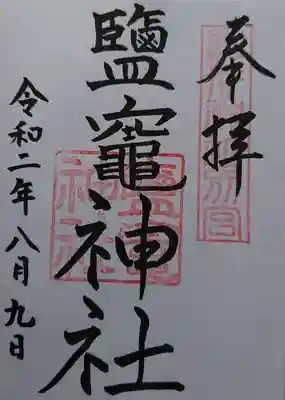 奉拝
鹽竈神社
令和二年八月九日